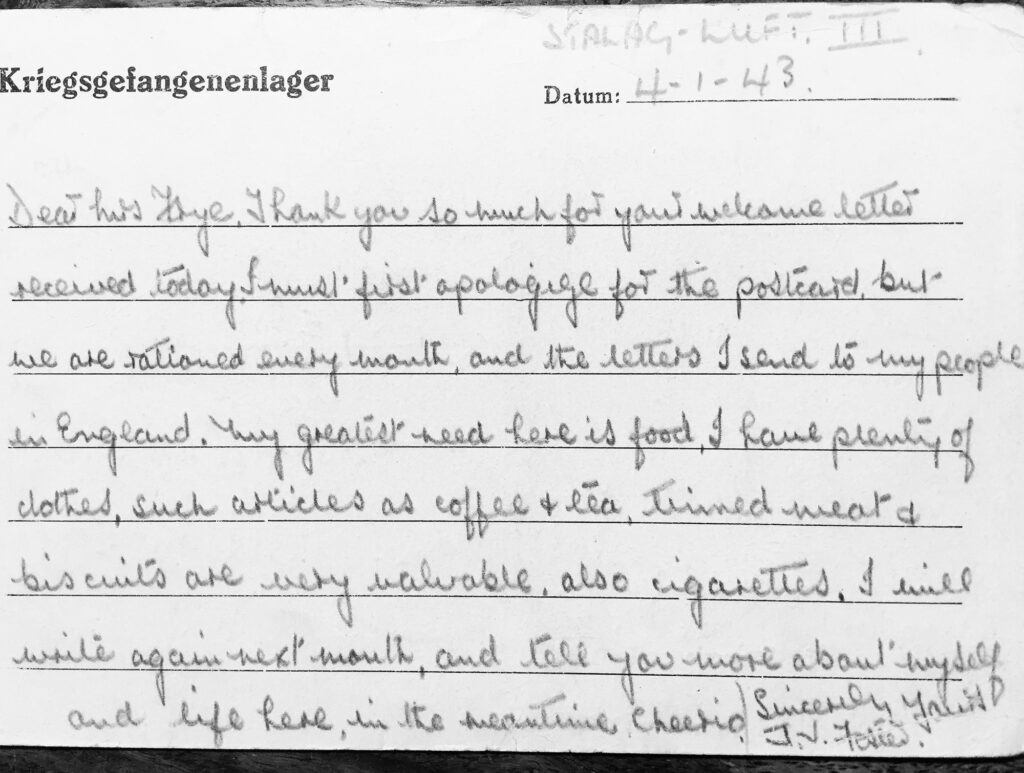 STALAG-LUFT. III.
Kriegsgefangenenlager
Datum: 4-1-43.
Dear Mrs Frye, Thank you so much for your welcome letter
received today. I must first apologige for the postcard, but
we are rationed every month, and the letters I send to my people
in England. My greatest need here is food, I have plenty of
clothes, such articles as coffee & tea, tinned meat &
biscuits are very valuable, also cigarettes. I will
write again next month, and tell you more about myself
and life here, in the meantime, Cheerio.
Sincerely Yours